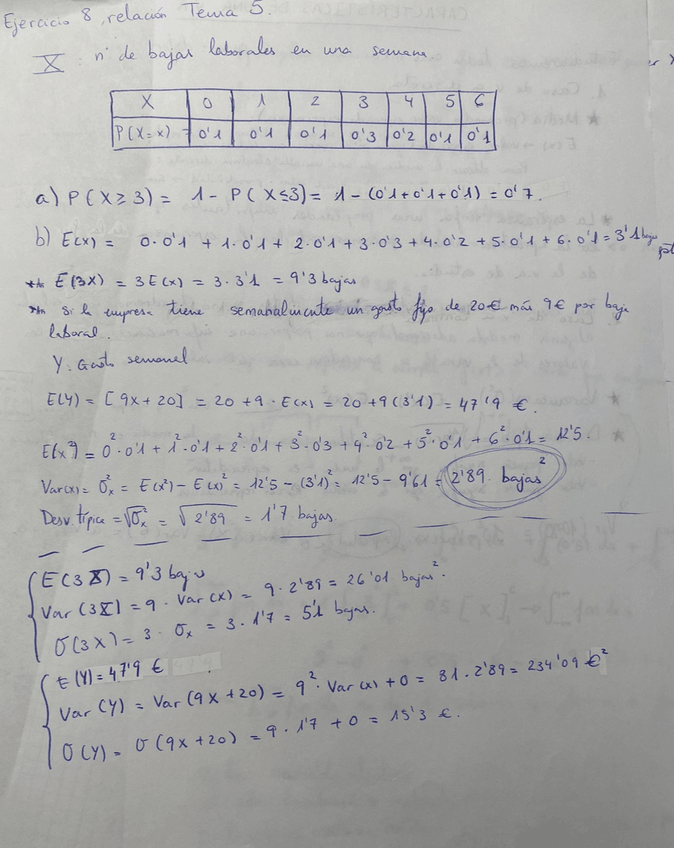 Ejercicio 8, relación Tema 5.
X: nº de bajas laborales en una semana.
X 0 1 2 3 4 5 6
P(X=x) 0'1 0'1 0'1 0'3 0'2 0'1 0'1
a) P(X≥3) = 1 - P(X≤3) = 1 - (0'1+0'1+0'1) = 0'7.
b) E(x) = 0·0'1 + 1·0'1 + 2·0'1 + 3·0'3 + 4·0'2 + 5·0'1 + 6·0'1 = 3'1 bajas
E(3X) = 3E(x) = 3·3'1 = 9'3 bajas
Si la empresa tiene semanalmente un gasto fijo de 20€ más 9€ por baja
laboral.
Y: Gasto semanal
E(Y) = [9x+20] = 20+9·E(x) = 20+9(3'1) = 47'9 €.
E(x²) = 0²·0'1 + 1²·0'1 + 2²·0'1 + 3²·0'3 + 4²·0'2 + 5²·0'1 + 6²·0'1 = 12'5.
Var(x) = σ²ₓ = E(x²) - E(x)² = 12'5 - (3'1)² = 12'5 - 9'61 = 2'89 bajas²
Desv. típica = √σ²ₓ = √2'89 = 1'7 bajas.
E(3X) = 9'3 bajas
Var(3X] = 9·Var(x) = 9·2'89 = 26'01 bajas².
σ(3X) = 3·σₓ = 3·1'7 = 5'1 bajas.
E(Y) = 47'9 €
Var(Y) = Var(9X+20) = 9²·Var(x) + 0 = 81·2'89 = 234'09 €²
σ(Y) = σ(9x+20) = 9·1'7 + 0 = 15'3 €.